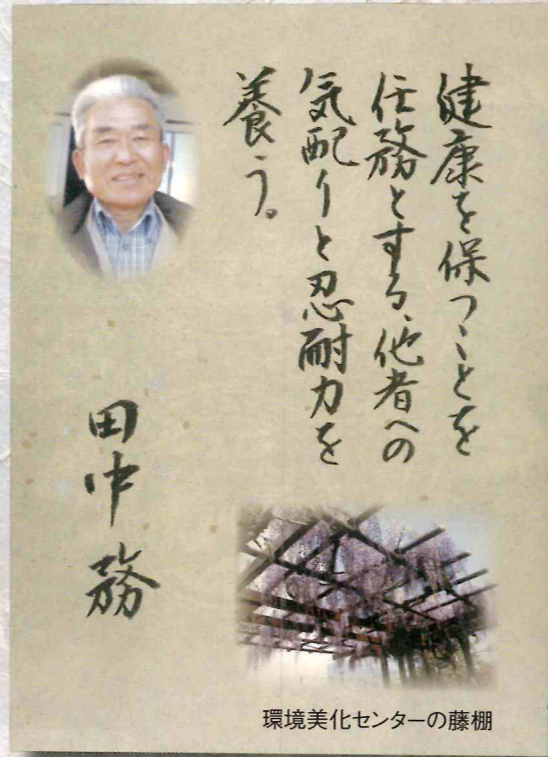 健康を保つことを
任務とする、他者への
気配りと忍耐力を
養う。
田中務
環境美化センターの藤棚